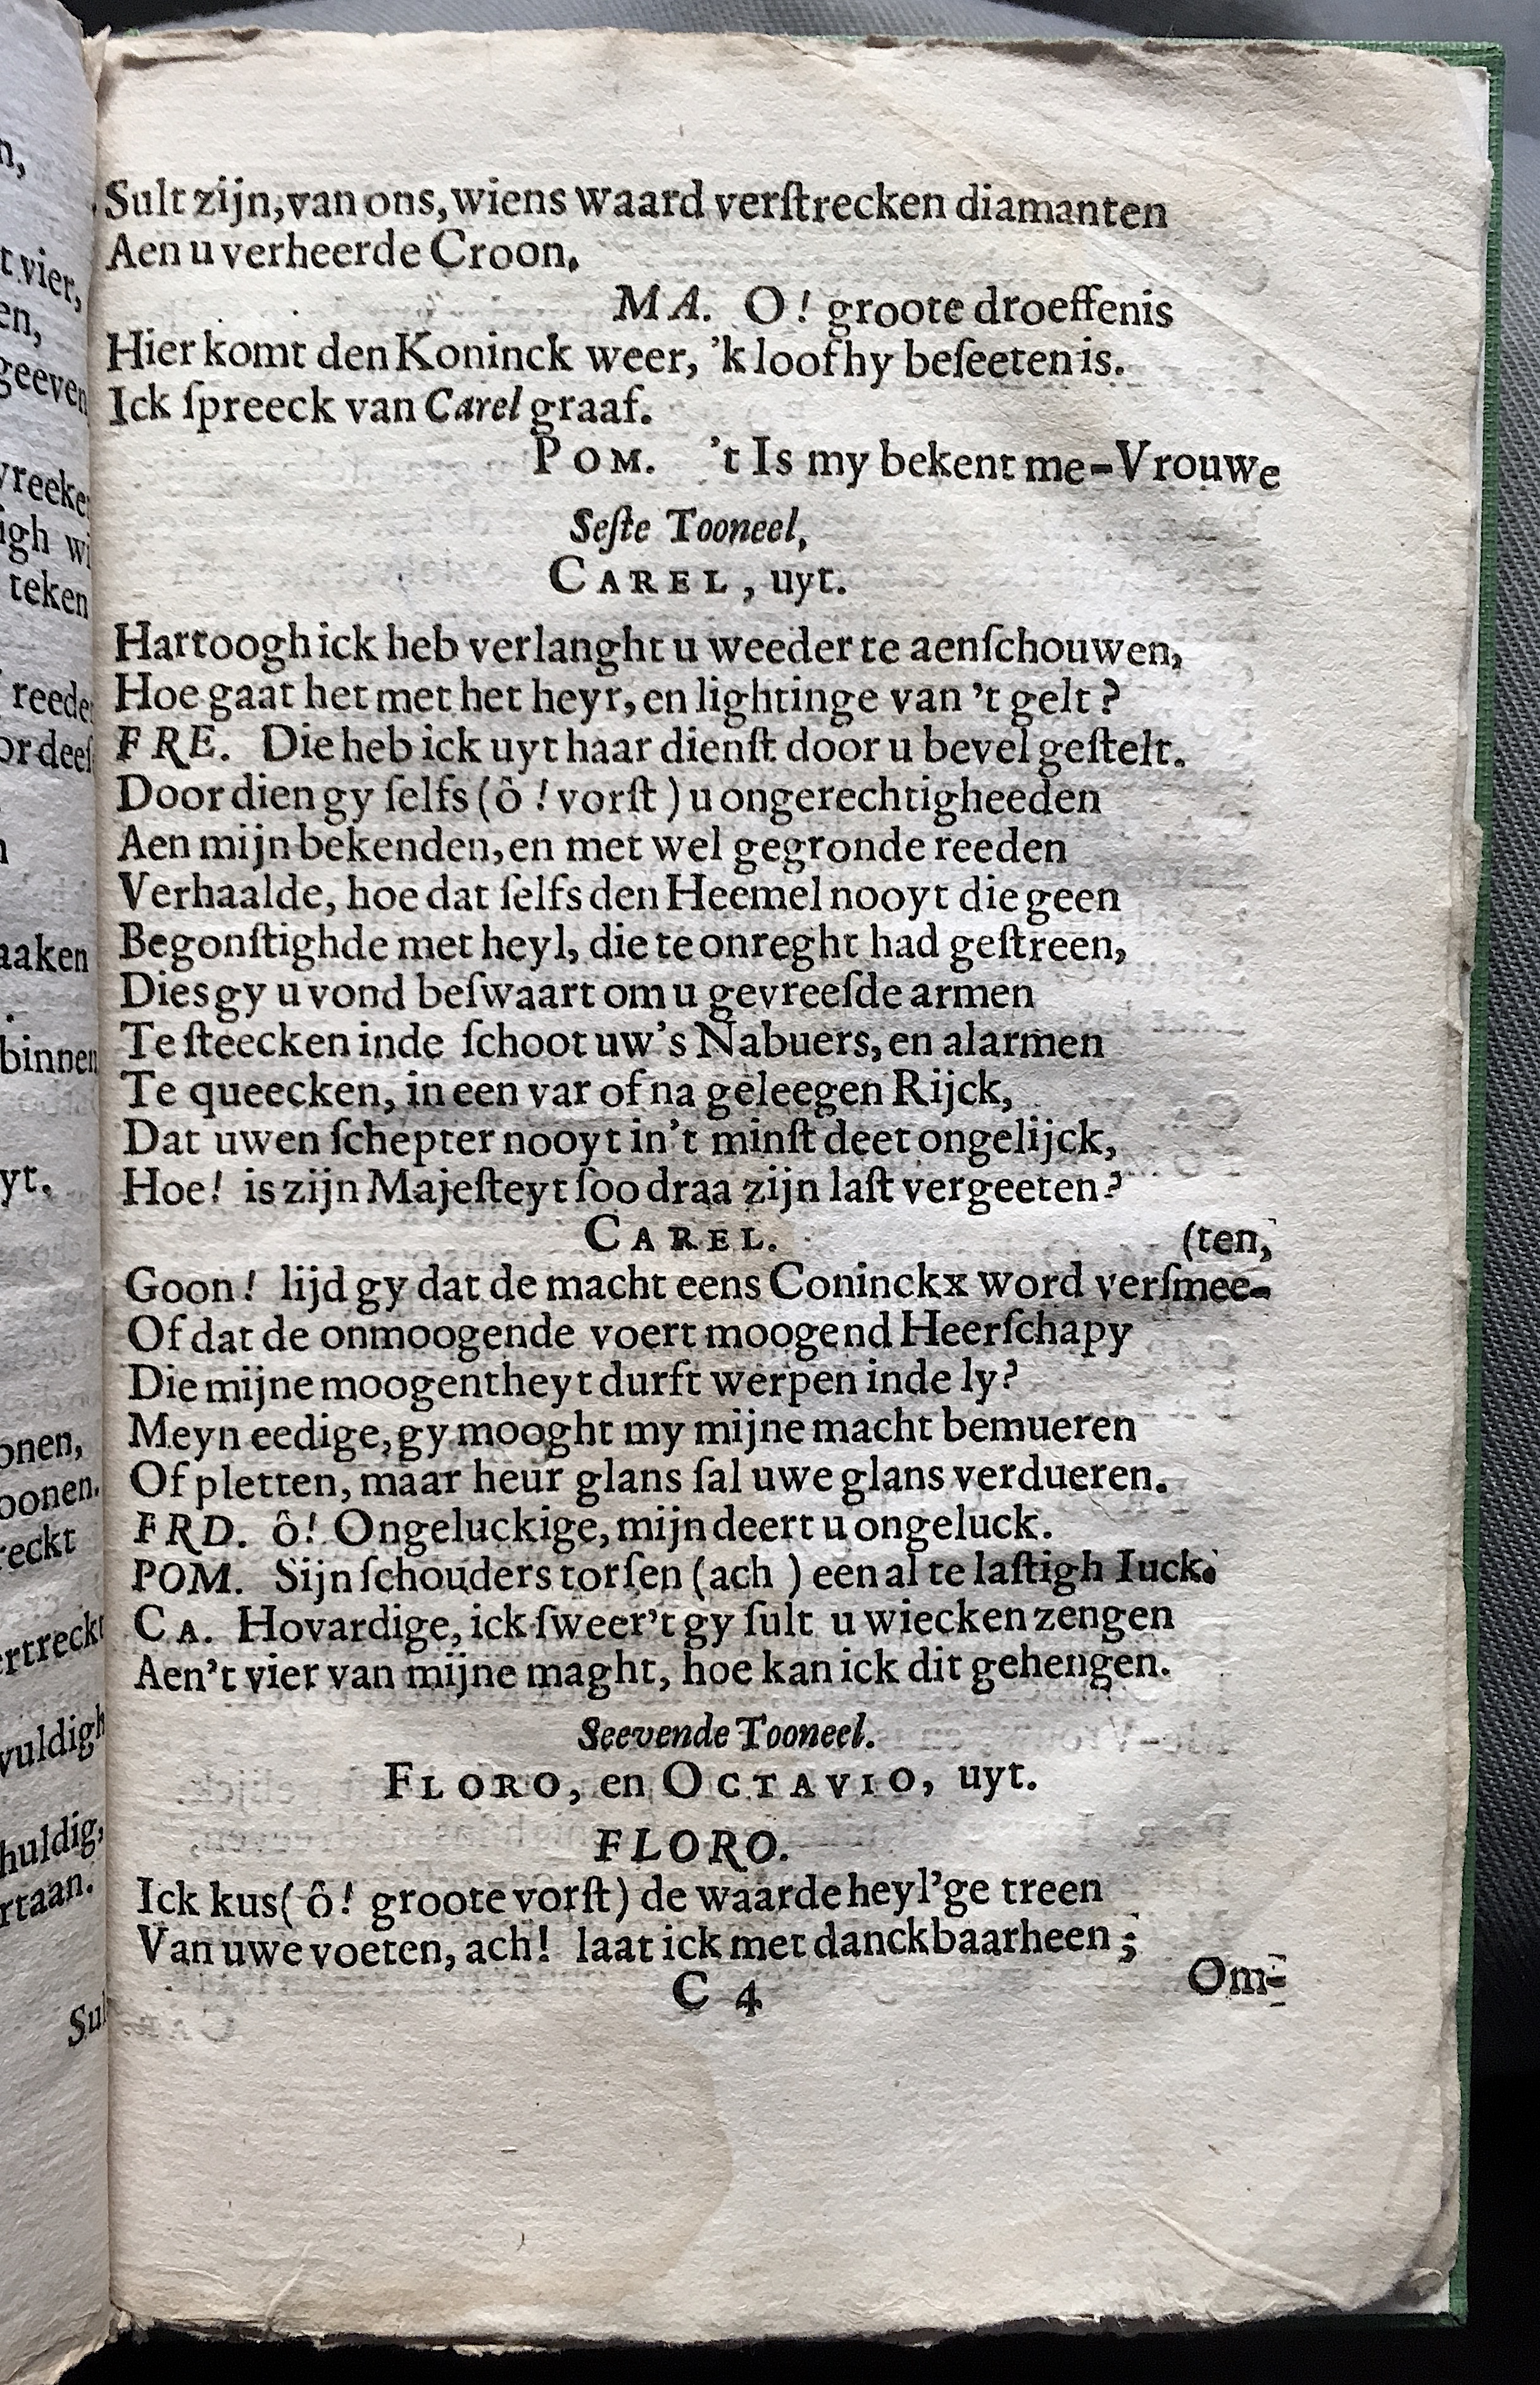 Sult zijn, van ons, wiens waard verſtrecken diamanten
Aen u verheerde Croon.
MA. O! groote droeffenis
Hier komt den Koninck weer, 'k loof hy beſeeten is.
Ick ſpreeck van Carel graaf.
POM. 't Is my bekent me-Vrouwe
Seſte Tooneel,
CAREL, uyt.
Hartoogh ick heb verlanght u weeder te aenſchouwen,
Hoe gaat het met het heyr, en lightinge van 't gelt?
FRE. Die heb ick uyt haar dienſt door u bevel geſtelt.
Door dien gy ſelfs (ô! vorſt) u ongerechtigheeden
Aen mijn bekenden, en met wel gegronde reeden
Verhaalde, hoe dat ſelfs den Heemel nooyt die geen
Begonſtighde met heyl, die te onreght had geſtreen,
Dies gy u vond beſwaart om u gevreeſde armen
Te ſteecken inde ſchoot uw's Nabuers, en alarmen
Te queecken, in een var of na geleegen Rijck,
Dat uwen ſchepter nooyt in't minſt deet ongelijck,
Hoe! is zijn Majeſteyt ſoo draa zijn laſt vergeeten?
CAREL. (ten,
Goon! lijd gy dat de macht eens Coninckx word verſmee-
Of dat de onmoogende voert moogend Heerſchapy
Die mijne moogentheyt durft werpen inde ly?
Meyn eedige, gy mooght my mijne macht bemueren
Of pletten, maar heur glans ſal uwe glans verdueren.
FRD. ô! Ongeluckige, mijn deert u ongeluck.
POM. Sijn ſchouders torſen (ach) een al te laſtigh Iuck.
CA. Hovardige, ick ſweer't gy ſult u wiecken zengen
Aen't vier van mijne maght, hoe kan ick dit gehengen.
Seevende Tooneel.
FLORO, en OCTAVIO, uyt.
FLORO.
Ick kus (ô! groote vorſt) de waarde heyl'ge treen
Van uwe voeten, ach! laat ick met danckbaarheen;
C 4 Om-